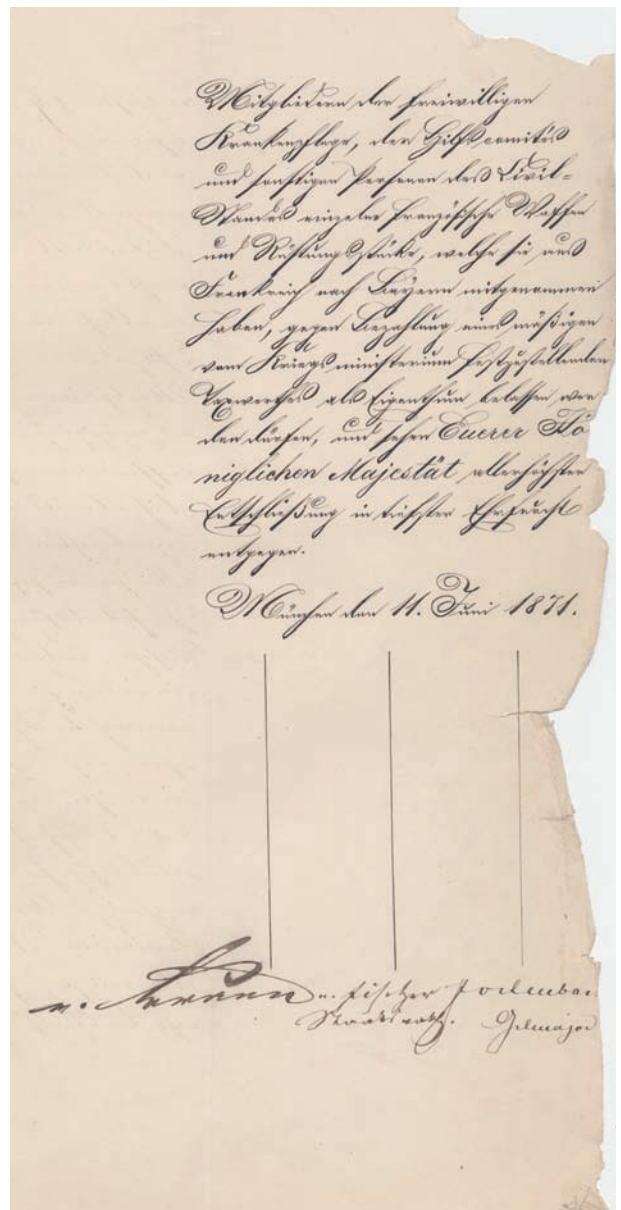 Mitgliedern der freiwilligen
Krankenpflege, der Hilfscomités
und sonstigen Personen des Civil-
Standes einzelne französische Waffen
und Rüstungsstücke, welche sie aus
Frankreich nach Bayern mitgenommen
haben, gegen Bezahlung eines mäßigen
vom Kriegsministerium festzustellenden
Taxwerthes als Eigenthum belassen wer
den dürfen, und sehen Euerer Kö
niglichen Majestät allerhöchster
Entschließung in tiefster Ehrfurcht
entgegen.
München den 11. Juni 1871.
v. Fischer
Staatsrath.